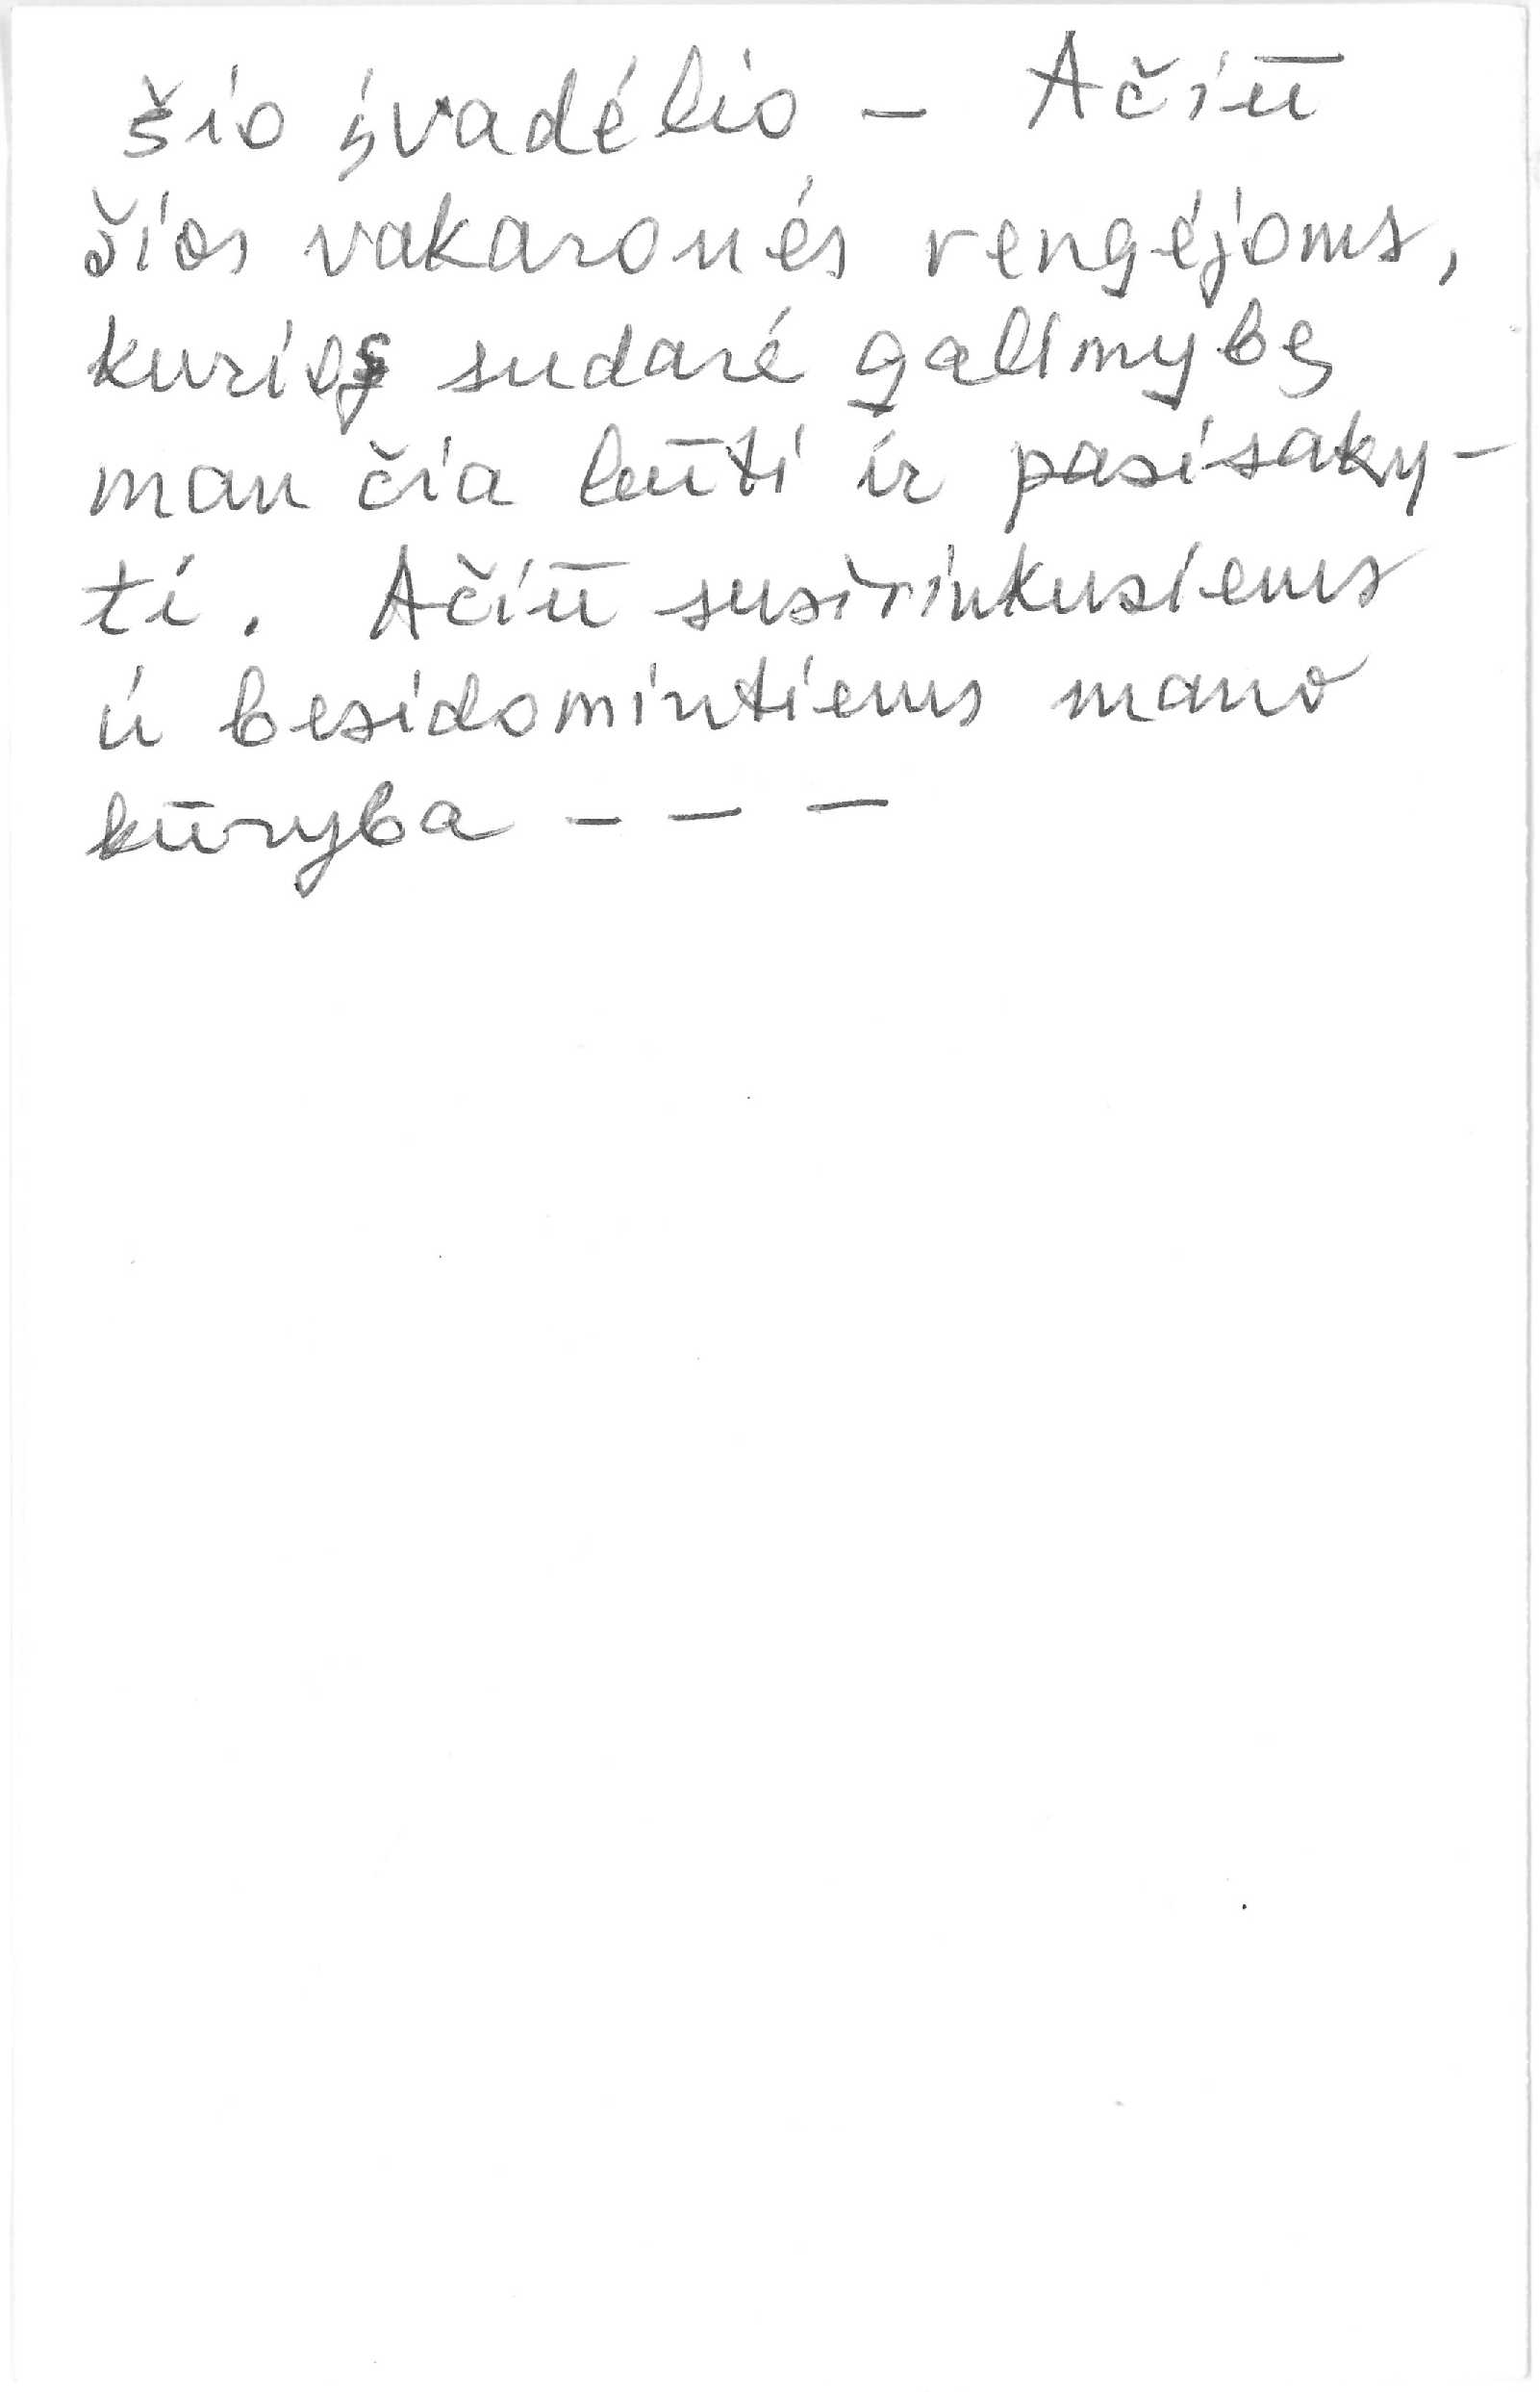 šio įvadėlio – Ačiū
šios vakaronės rengėjoms,
kurios sudarė galimybę
man čia būti ir pasisaky-
ti. Ačiū susirinkusiems
ir besidomintiems mano
kūryba – – –